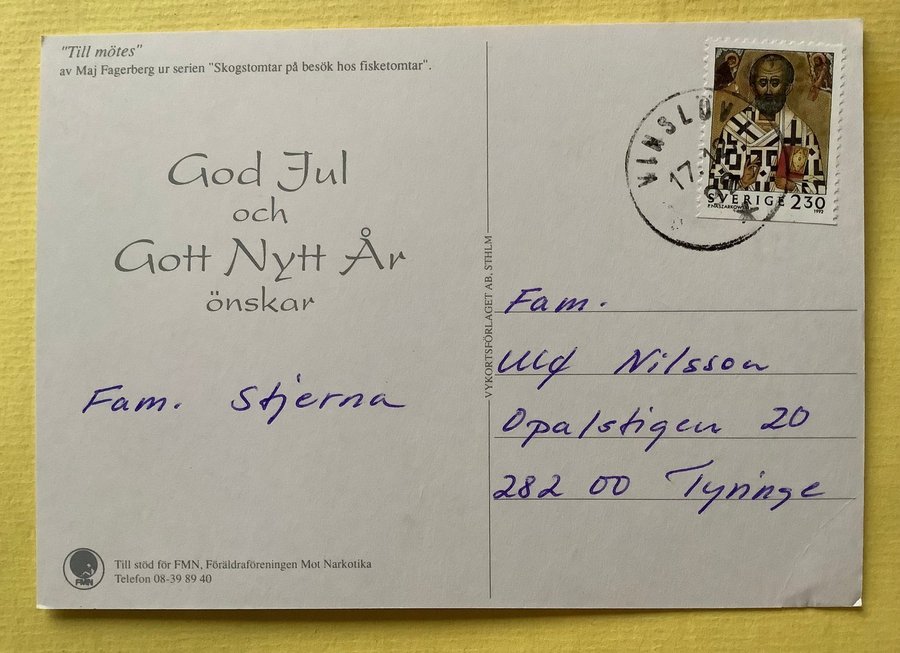 "Till mötes"
av Maj Fagerberg ur serien "Skogstomtar på besök hos fisketomtar".
God Jul
och
Gott Nytt År
önskar
Fam. Stjerna
FMN
Till stöd för FMN, Föräldraföreningen Mot Narkotika
Telefon 08-39 89 40
VYKORTSFÖRLAGET AB, STHLM
VINSLÖV
17.12
92
SVERIGE 2.30
1992
Fam.
Ulf Nilsson
Opalstigen 20
282 00 Tyringe